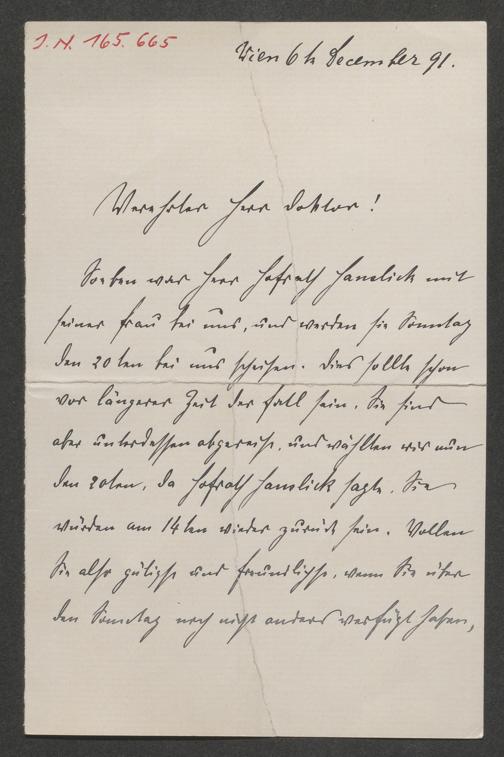 I.N. 165.665
Wien 6th December 91.
Verehrter Herr Doktor!
Soeben war Herr Hofrath Hanslick mit
seiner Frau bei uns, und werden sie Sonntag
den 20ten bei uns speisen. Dies sollte schon
vor längerer Zeit der Fall sein. Sie sind
aber unterdessen abgereist, und wählten wir nun
den 20ten, da Hofrath Hanslick sagte. Sie
würden am 14ten wieder zurück sein. Wollen
Sie also gütigst und freundlichst, wenn Sie über
den Sonntag noch nicht anders verfügt haben,